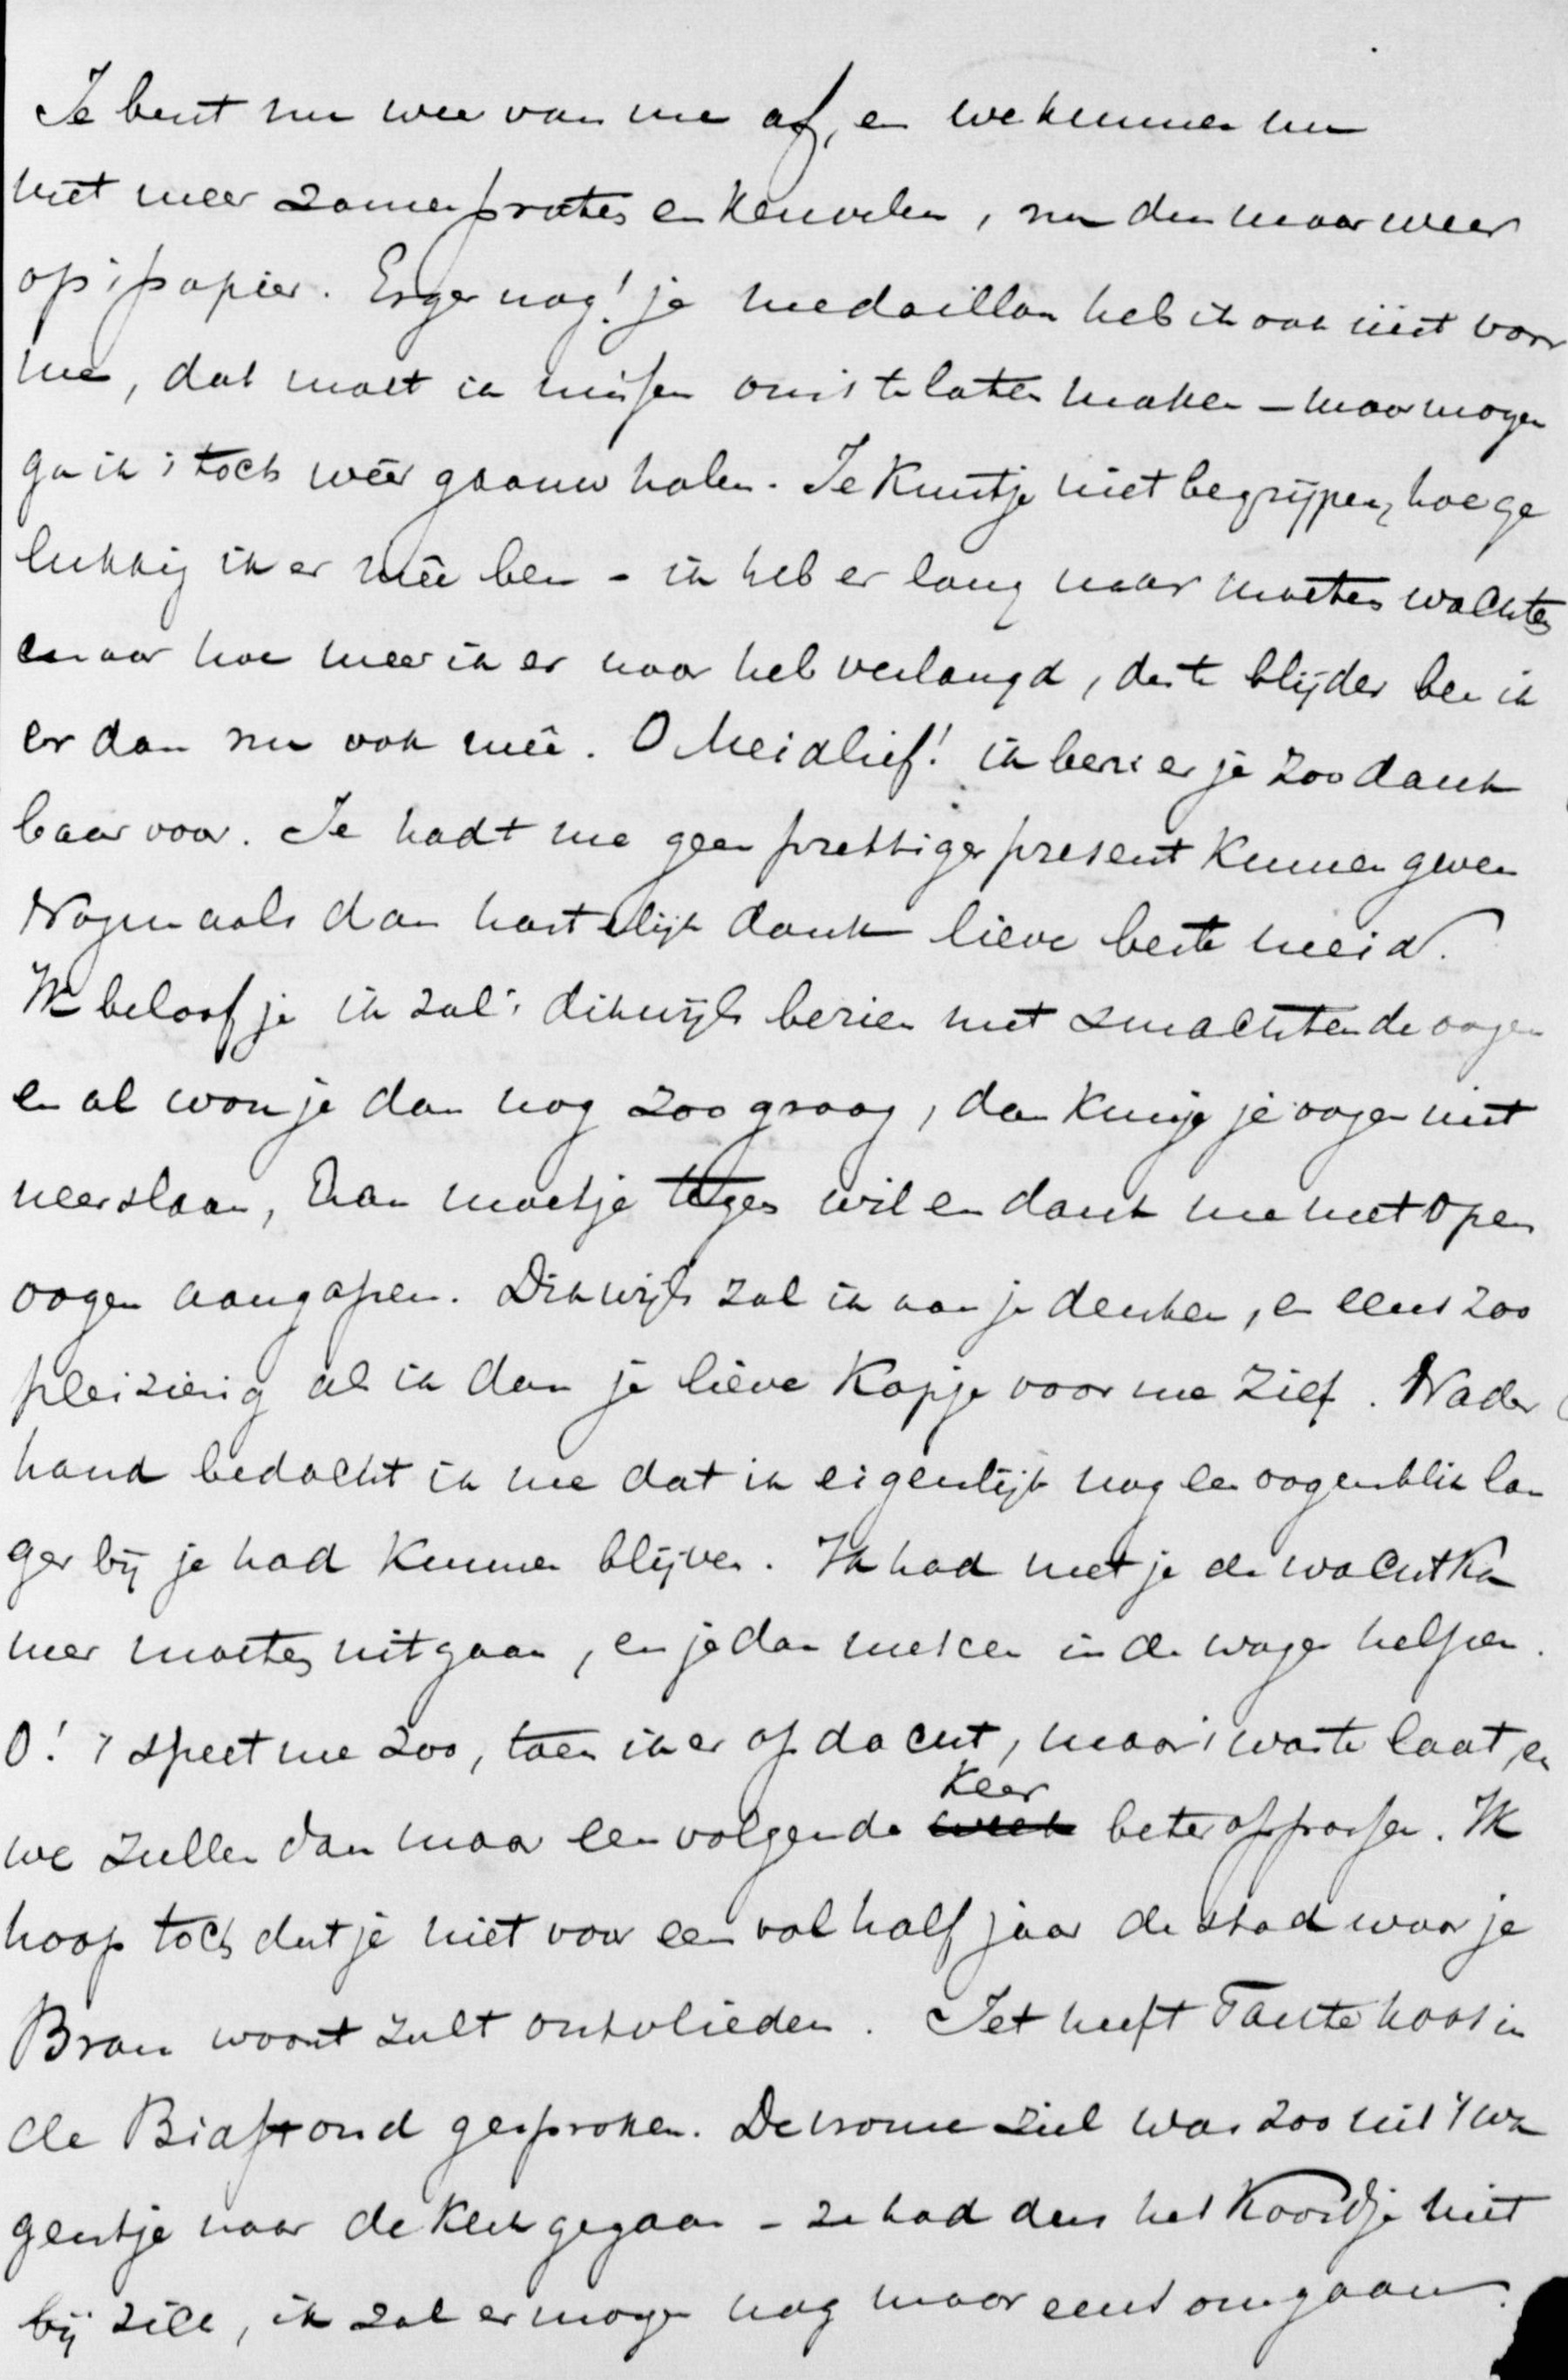 Je bent nu weer van me af, en we kunnen nu
niet meer zamen praten en keuvelen, nu dan maar weer
op 't papier. Erger nog! je medaillon heb ik ook niet voor
me, dat moet ik missen om 't te laten maken – maar morgen
ga ik 't toch wéér gaauw halen. Je kunt je niet begrijpen, hoe ge
lukkig ik er meê ben – ik heb er lang naar moeten wachten
maar hoe meer ik er naar heb verlangd, des te blijder ben ik
er dan nu ook meê. O Meidlief! ik ben er je zoo dank
baar voor. Je hadt me geen prettiger present kunnen geven
Nogmaals dan hartelijk dank lieve beste meid.
Ik beloof je ik zal 't dikwijls bezien met smachtende oogen
en al wou je dan nog zoo graag, dan kun je je oogen niet
neerslaan, dan moet je tegen wil en dank me met open
oogen aangapen. Dikwijls zal ik aan je denken, en eens zoo
pleizierig als ik dan je lieve kopje voor me zie. Nader
hand bedacht ik me dat ik eigenlijk nog een oogenblik lan
ger bij je had kunnen blijven. Ik had met je de wachtka
mer moeten uitgaan, en je dan meteen in de wagen helpen.
O! 't speet me zoo, toen ik er op dacht, maar 't was te laat, en
we zullen dan maar een volgende week keer beter oppassen. Ik
hoop toch dat je niet voor een vol half jaar de stad waar je
Bram woont zult ontvlieden. Jet heeft Tante Koos in
de Bidstond gesproken. De vrome ziel was zoo uit 't wa
gentje naar de kerk gegaan – ze had dus het koordje niet
bij zich, ik zal er morgen nog maar eens omgaan.